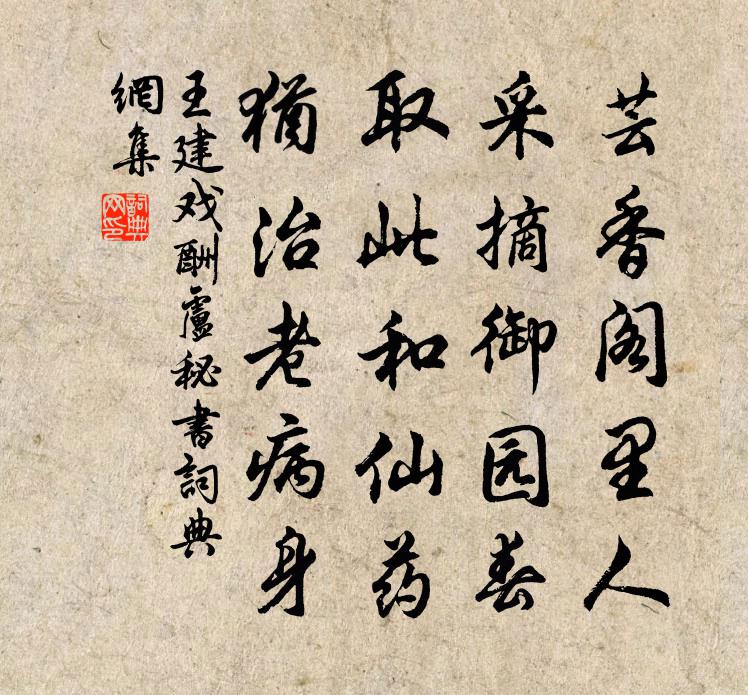 芸香阁里人
采摘御园春
取此和仙药
猶治老病身
王建戏酬盧秘書詞典
網集
詞典網印